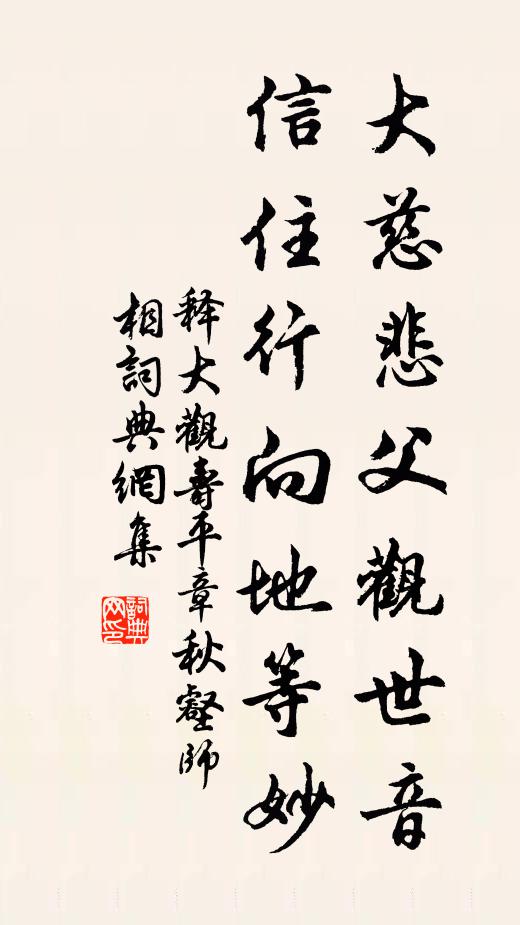 大慈悲父觀世音
信住行向地等妙
释大觀壽平章秋壑師
相詞典網集
詞典网印